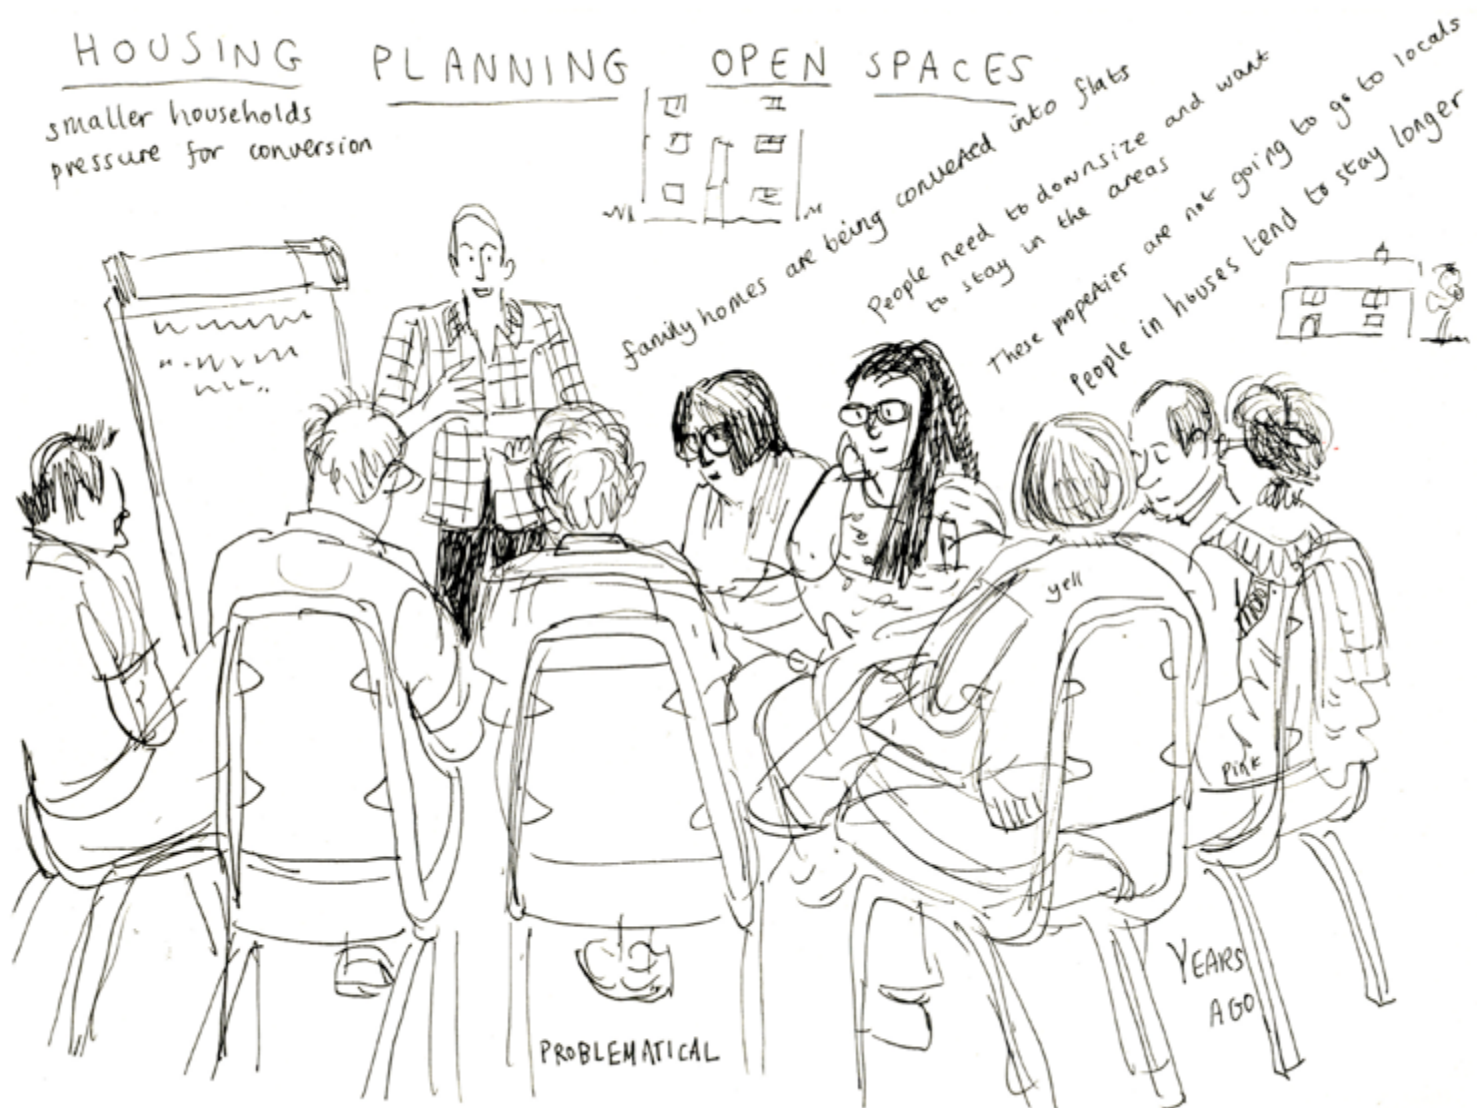 HOUSING PLANNING OPEN SPACES
smaller households
pressure for conversion
family homes are being converted into flats
People need to downsize and want
to stay in the areas
These properties are not going to go to locals
People in houses tend to stay longer
yell
Pink
YEARS
AGO
PROBLEMATICAL